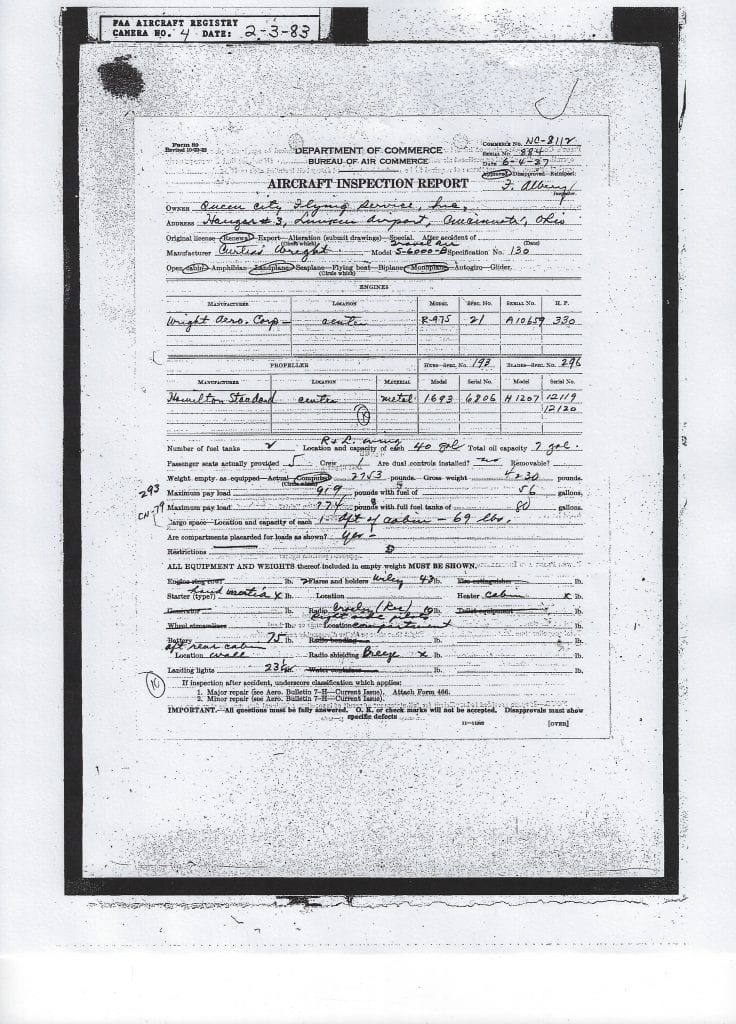 FAA AIRCRAFT REGISTRY
CAMERA NO. 4 DATE: 2-3-83
Form 89
DEPARTMENT OF COMMERCE
BUREAU OF AIR COMMERCE
AIRCRAFT INSPECTION REPORT
COMMERCE NO. NC-8112
SERIAL NO. 884
DATE 6-4-37
Approved—Disapproved—Reinspect:
Inspector.
OWNER Queen City Flying Service, Inc.
ADDRESS Hangar #3, Lunken Airport, Cincinnati, Ohio
Original license—Renewal—Export—Alteration (submit drawings)—Special. After accident of
(Circle which) (Date)
Travel Air
Manufacturer Curtiss Wright Model S-6000-B Specification No. 130
Open—cabin—Amphibian—Landplane—Seaplane—Flying boat—Biplane—Monoplane—Autogiro—Glider.
(Circle which)
ENGINES
MANUFACTURER LOCATION MODEL SPEC. NO. SERIAL NO. H. P.
Wright Aero. Corp— center R-975 21 A10659 330
PROPELLER HUBS—SPEC. NO. 193 BLADES—SPEC. NO. 296
MANUFACTURER LOCATION MATERIAL Model Serial No. Model Serial No.
Hamilton Standard center metal 1693 6806 H1207 12119
12120
R & L wing
Number of fuel tanks 2 Location and capacity of each 40 gal Total oil capacity 7 gal.
Passenger seats actually provided 5 Crew 1 Are dual controls installed? no Removable?
Weight empty as equipped—Actual—Computed 2753 pounds. Gross weight 4230 pounds.
(Circle which)
293
Maximum pay load 919 pounds with fuel of 56 gallons.
CN-79
Maximum pay load 774 pounds with full fuel tanks of 80 gallons.
Cargo space—Location and capacity of each 1 aft of cabin — 69 lbs.
Are compartments placarded for loads as shown? yes—
Restrictions
ALL EQUIPMENT AND WEIGHTS thereof included in empty weight MUST BE SHOWN.
Engine ring cowl lb. 2 Flares and holders Wiley 43 lb. Fire extinguisher lb.
Starter (type?) hand inertia x lb. Location Heater cabin x lb.
Generator lb. Radio Crosley (Rec) 10 lb. Toilet equipment lb.
Right side pilots
Wheel streamlines lb. Location compartment lb.
Battery 75 lb. Radio bonding lb. lb.
aft rear cabin
Location wall Radio shielding Breeze x lb. lb.
Landing lights 23½ lb. lb. lb.
If inspection after accident, underscore classification which applies:
1. Major repair (see Aero. Bulletin 7-H—Current Issue). Attach Form 466.
2. Minor repair (see Aero. Bulletin 7-H—Current Issue).
IMPORTANT.—All questions must be fully answered. O. K. or check marks will not be accepted. Disapprovals must show
specific defects
[OVER]